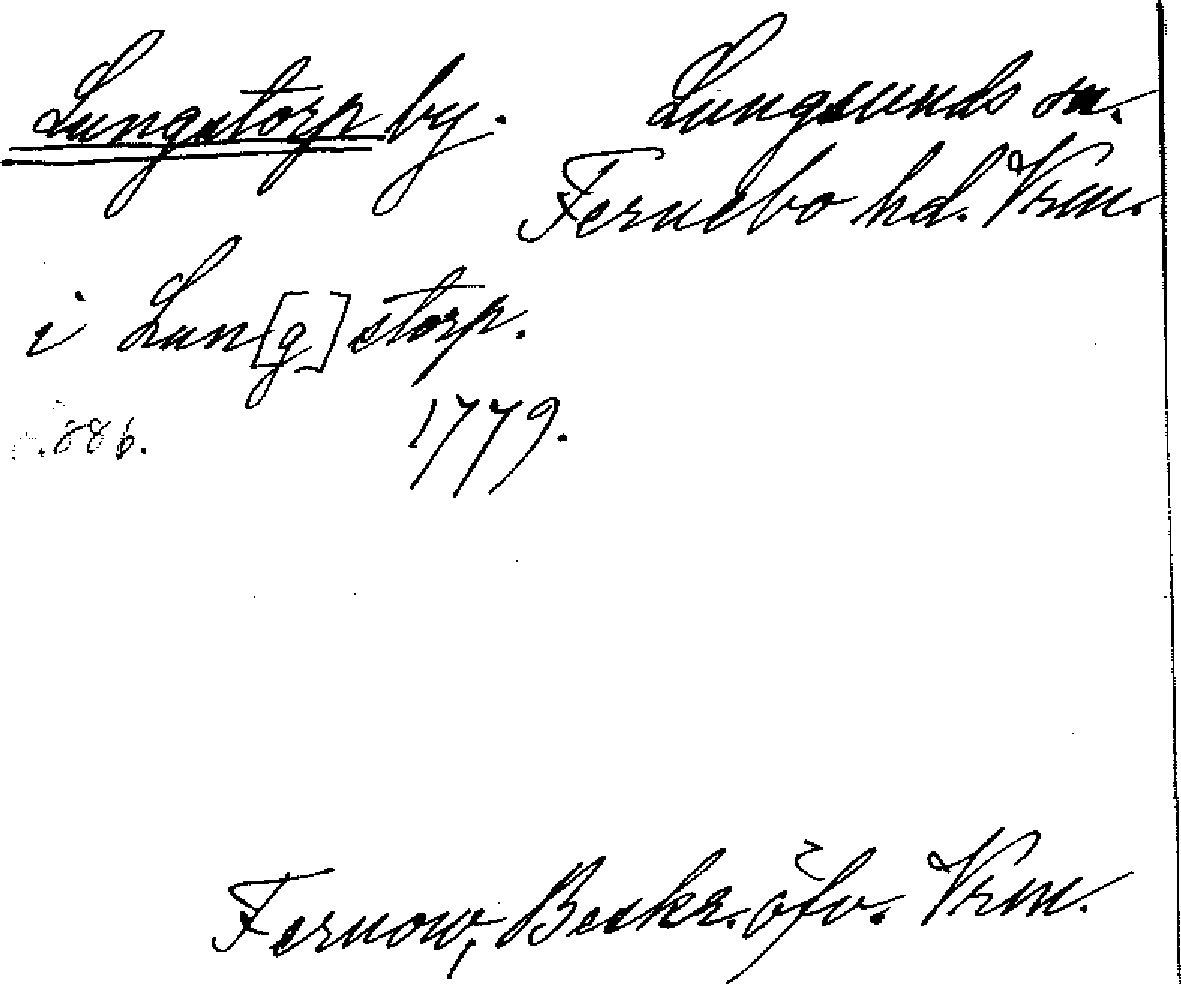 Lungstorp by. Lungsunds sn.
Fernebo hd. Vrm.
i Lun[g]storp.
s.886. 1779.
Fernow, Beskr. öfv. Vrm.